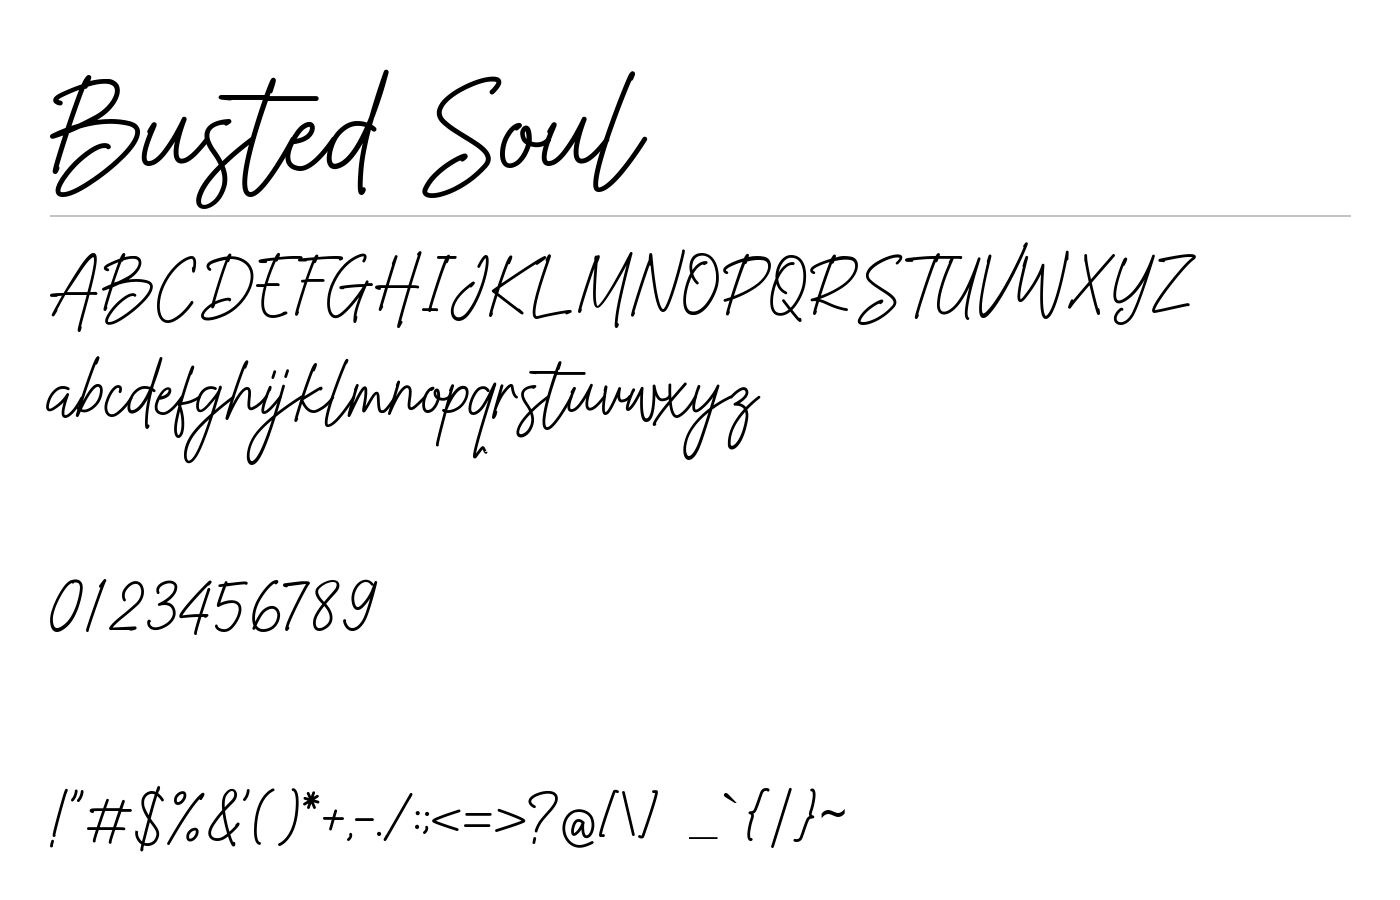 Busted Soul
ABCDEFGHIJKLMNOPQRSTUVWXYZ
abcdefghijklmnopqrstuvwxyz
0123456789
!"#$%&'()*+,-./:;<=>?@[\] _`{|}~